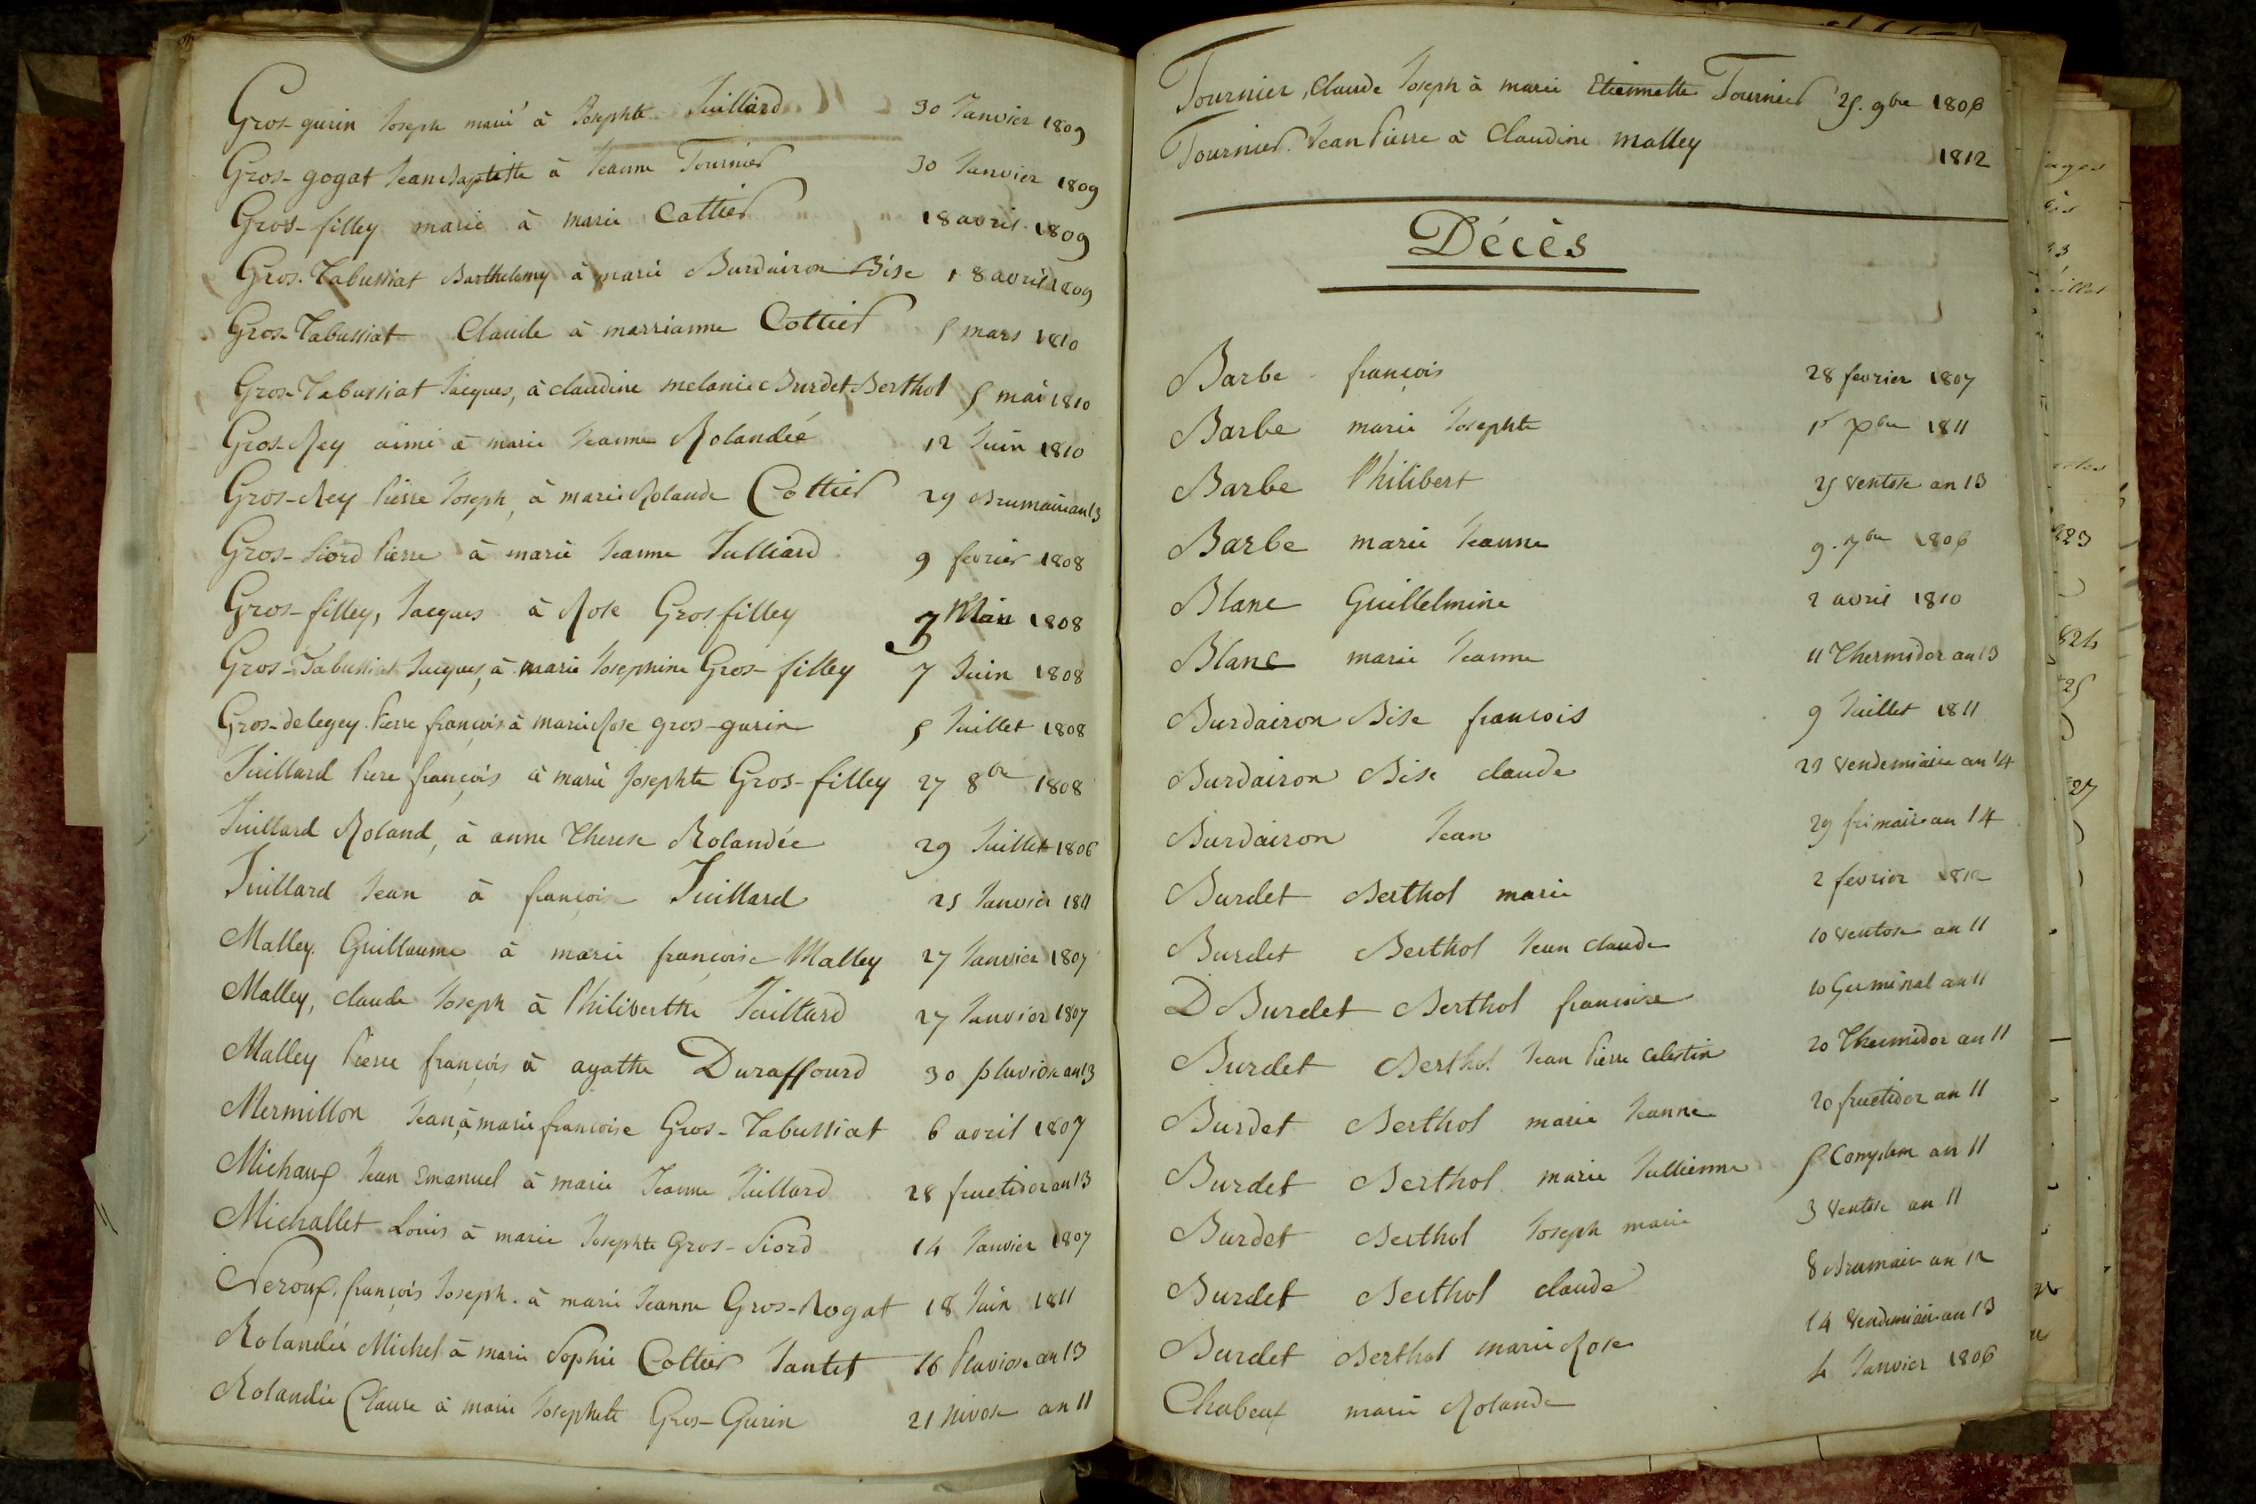 Gros-gurin Joseph marié à Josephte Juillard 30 Janvier 1809
Gros-gogat Jean Baptiste à Jeanne Tournier 30 Janvier 1809
Gros-filley marié à marie Cottier 18 avril 1809
Gros-Tabussiat Barthelemy à marie Burdairon Bise 18 avril 1809
Gros-Tabussiat Claude à marrianne Cottier 5 mars 1810
Gros-Tabussiat Jacques, à claudine melanie Burdet-Berthol 5 mai 1810
Gros-Rey aimé à marie Jeanne Rolandée 12 Juin 1810
Gros-Rey Pierre Joseph, à marie Rolande Cottier 29 Brumaire an 13
Gros-Siord Pierre à marie Jeanne Julliard 9 fevrier 1808
Gros-filley, Jacques à Rose Grosfilley 3 Mai 1808
Gros-Tabussiat Jacques, à marie Josephine Gros-filley 7 Juin 1808
Gros-delegey Pierre françois à marie Rose gros-gurin 5 Juillet 1808
Juillard Piere françois à marie Josephte Gros-filley 27 8bre 1808
Juillard Roland, à anne Therese Rolandée 29 Juillet 1806
Juillard Jean à françoise Juillard 25 Janvier 1811
Malley Guillaume à marie françoise Malley 27 Janvier 1807
Malley, claude Joseph à Philiberthe Juillard 27 Janvier 1807
Malley Pierre françois à agathe Duraffourd 30 pluviose an 13
Mermillon Jean, à marie françoise Gros-Tabussiat 6 avril 1807
Michaux Jean Emanuel à marie Jeanne Juillard 28 fructidor an 13
Michallet Louis à marie Josephte Gros-Siord 14 Janvier 1807
Neroux françois Joseph à marie Jeanne Gros-Rogat 18 Juin 1811
Rolandée Michel à marie Sophie Cottier Jantet 16 Pluviose an 13
Rolandée Claure à marie Josephete Gros-Gurin 21 Nivose an 11
Tournier, Claude Joseph à marie Etiennette Tournier 25 9bre 1806
Tournier Jean Pierre à Claudine malley 1812
Décès
Barbe françois 28 fevrier 1807
Barbe marie Josephte 1r Xbre 1811
Barbe Philibert 25 Ventose an 13
Barbe marie Jeanne 9 7bre 1806
Blanc Guillelmine 2 avril 1810
Blanc marie Jeanne 11 Thermidor an 13
Burdairon Bise francois 9 Juillet 1811
Burdairon Bise claude 23 Vendemiaire an 14
Burdairon Jean 29 frimaire an 14
Burdet Berthol marie 2 fevrier 1812
Burdet Berthol Jean claude 10 Ventose an 11
D Burdet Berthol francoise 10 Germinal an 11
Burdet Berthol Jean Pierre Celestin 20 Thermidor an 11
Burdet Berthol marie Jeanne 20 fructidor an 11
Burdet Berthol marie Jullienne 5 Complem an 11
Burdet Berthol Joseph marie 3 Ventose an 11
Burdet Berthol claude 8 Brumaire an 12
Burdet Berthol marie Rose 14 Vendemiaire an 13
Chabeux marie Rolande 4 Janvier 1806